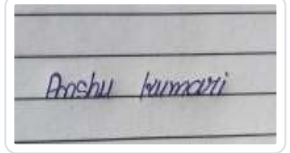 Anshu kumari